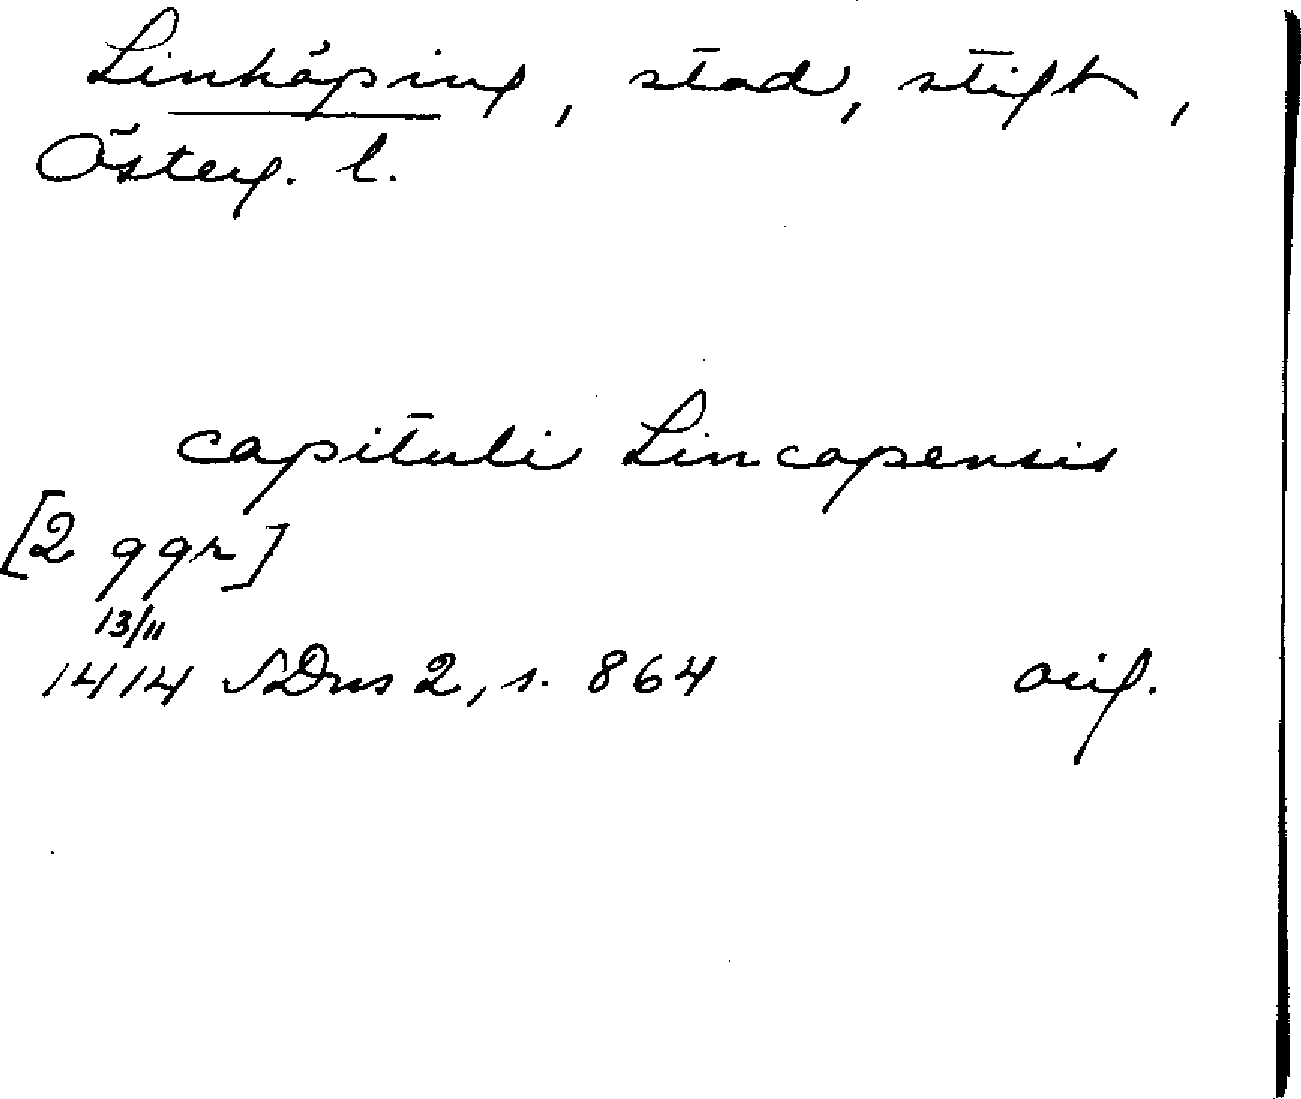 Linköping, stad, stift,
Österg. l.
capituli Lincopensis
[2 ggr]
13/11
1414 SDns 2, s. 864 orig.